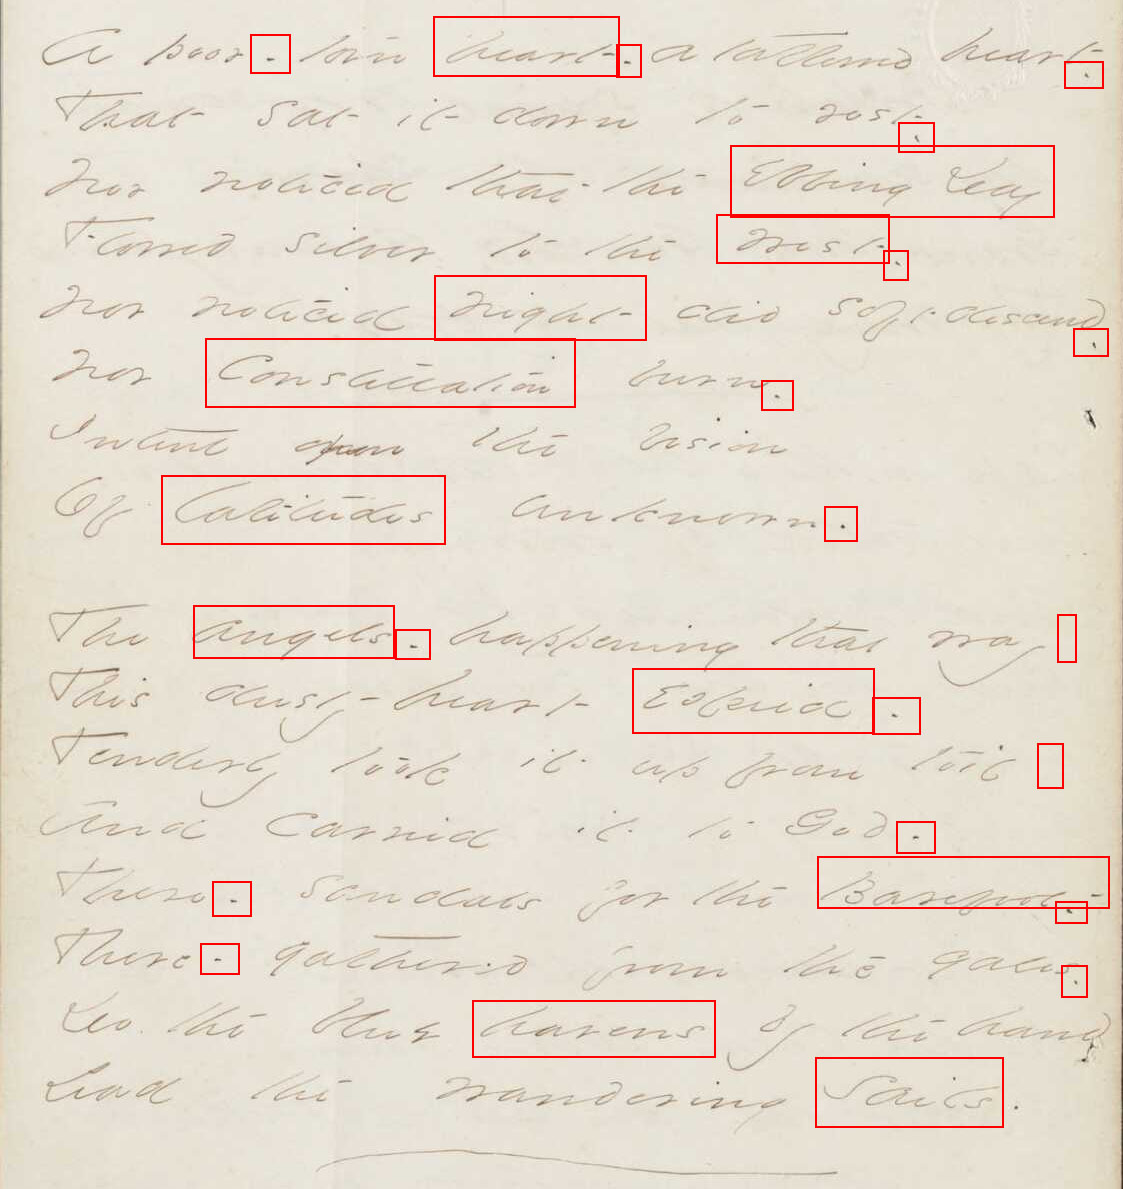 A poor - torn heart - a tattered heart -
That sat it down to rest -
Nor noticed that the Ebbing Day
Flowed silver to the west -
Nor noticed night did soft descend -
Nor Constellation burn -
Intent upon the vision
Of latitudes unknown -
The angels - happening that way
This dusty heart Espied -
Tenderly took it up from toil
And carried it to God -
There - sandals for the Barefoot -
There - gathered from the gales -
Do the blue havens by the hand
Lead the wandering Sails .